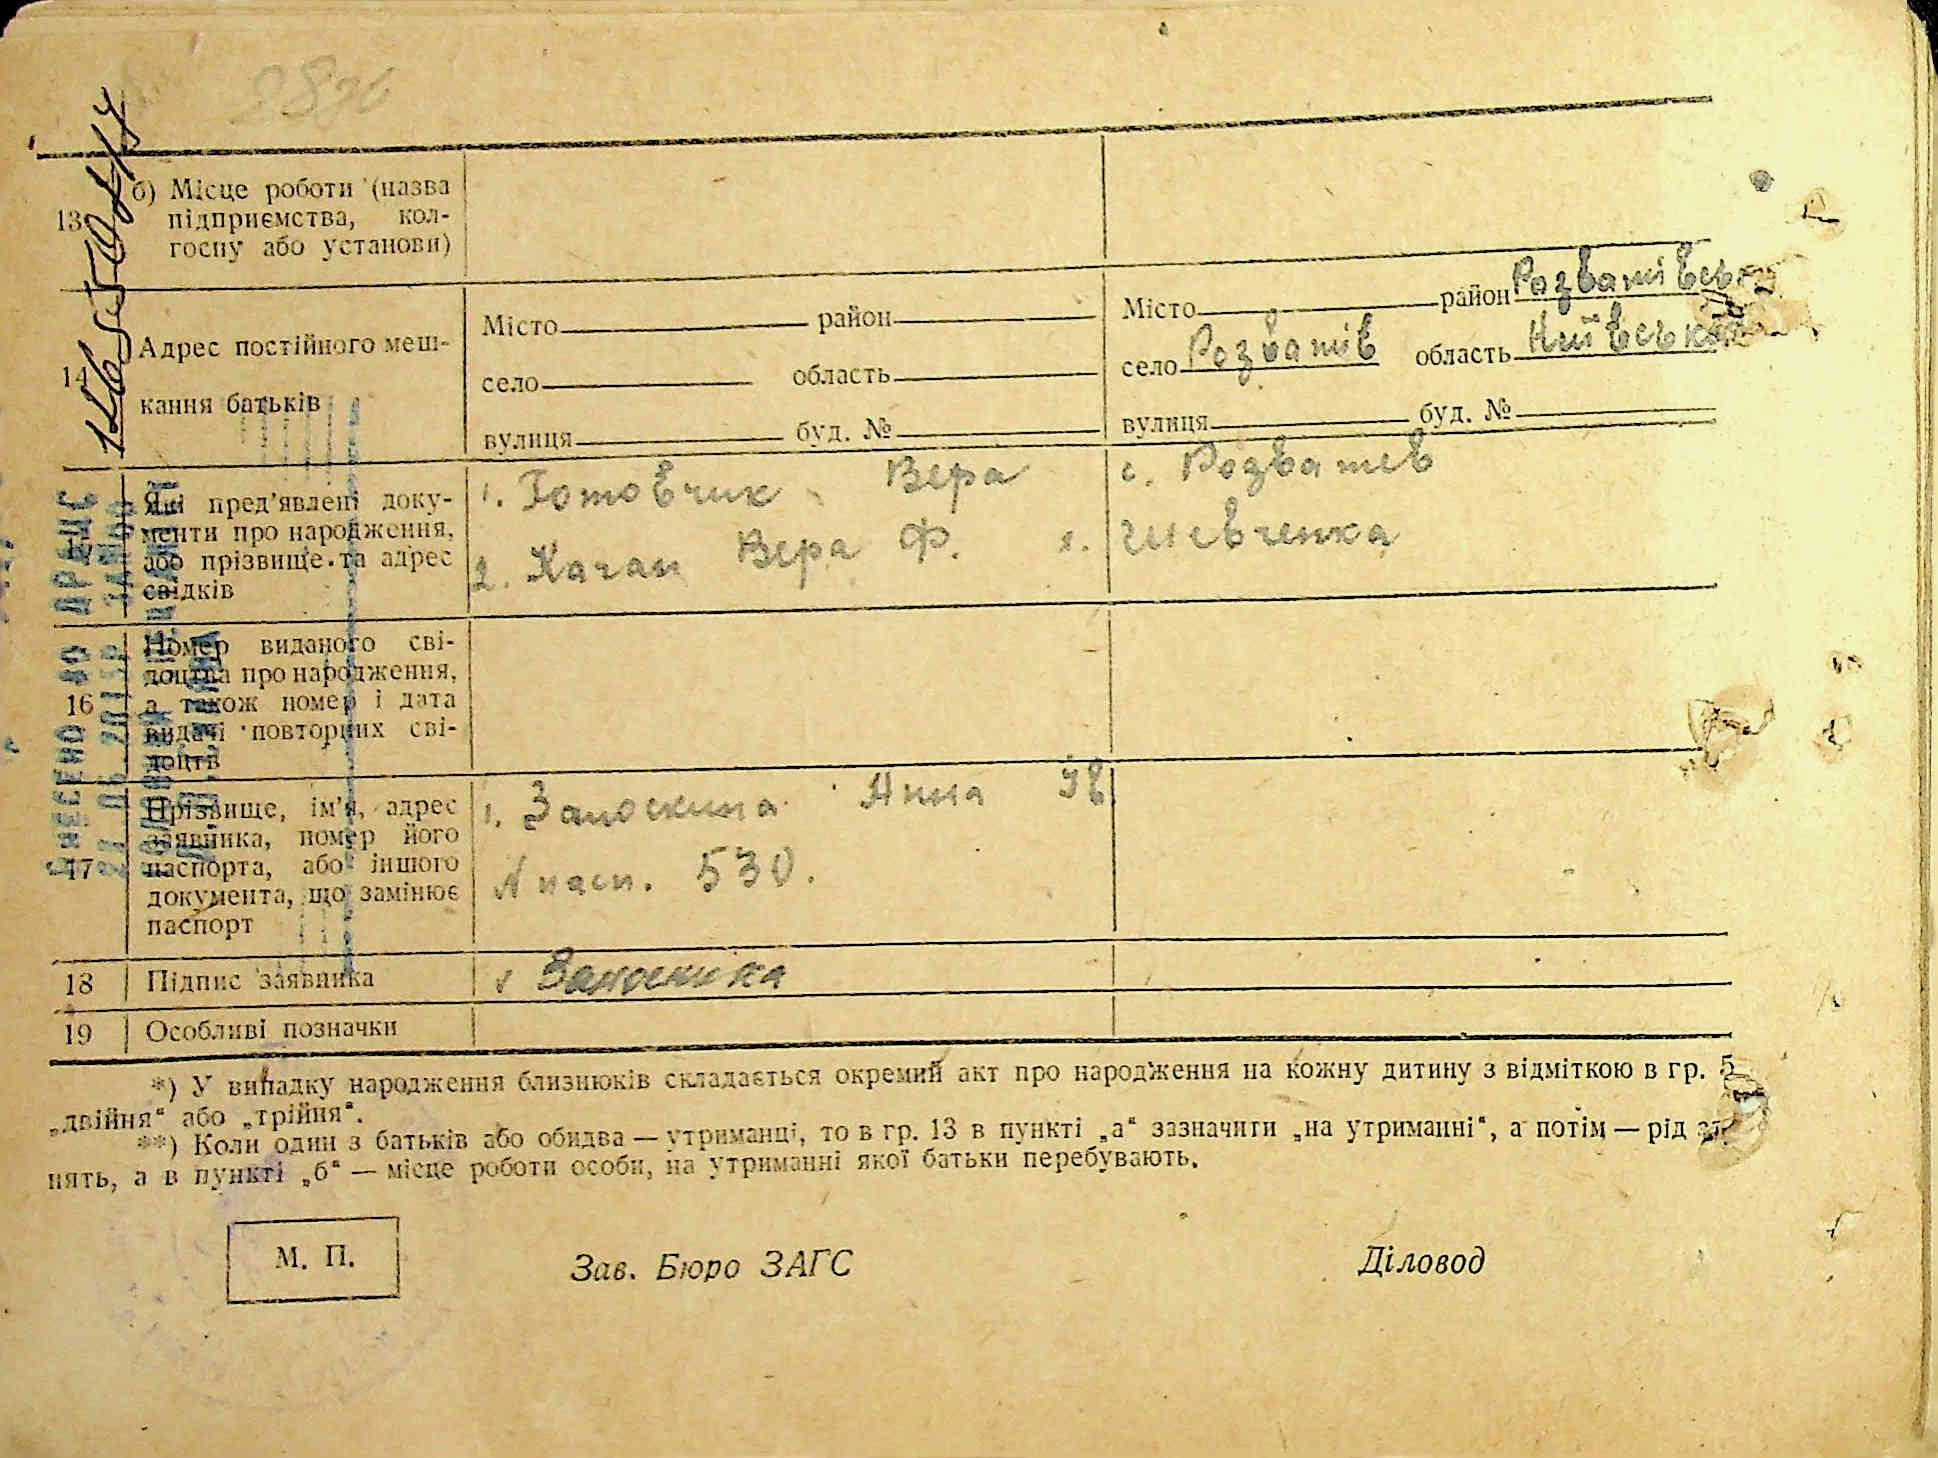 б) Місце роботи (назва
13 підприємства, кол-
госпу або установи)
Місто район
Місто район Розватівськ
14 Адрес постійного меш-
кання батьків
село область
село Розватів область Київська
вулиця буд. №
вулиця буд. №
Які пред'явлені доку-
менти про народження,
або прізвище та адрес
свідків
1. Готовчик Вера с. Розватев
2. Качан Вера Ф. х. Шевченка
Номер виданого сві-
доцтва про народження,
16 а також номер і дата
видачі повторних сві-
доцтв
Прізвище, ім'я, адрес
заявника, номер його
17 паспорта, або іншого
документа, що замінює
паспорт
1. Замоскина Анна Ів
N пасп. 530.
18 Підпис заявника Замоскина
19 Особливі позначки
*) У випадку народження близнюків складається окремий акт про народження на кожну дитину з відміткою в гр. 5
„двійня“ або „трійня“.
**) Коли один з батьків або обидва — утриманці, то в гр. 13 в пункті „а“ зазначити „на утриманні“, а потім — рід за-
нять, а в пункті „б“ — місце роботи особи, на утриманні якої батьки перебувають.
М. П.
Зав. Бюро ЗАГС
Діловод